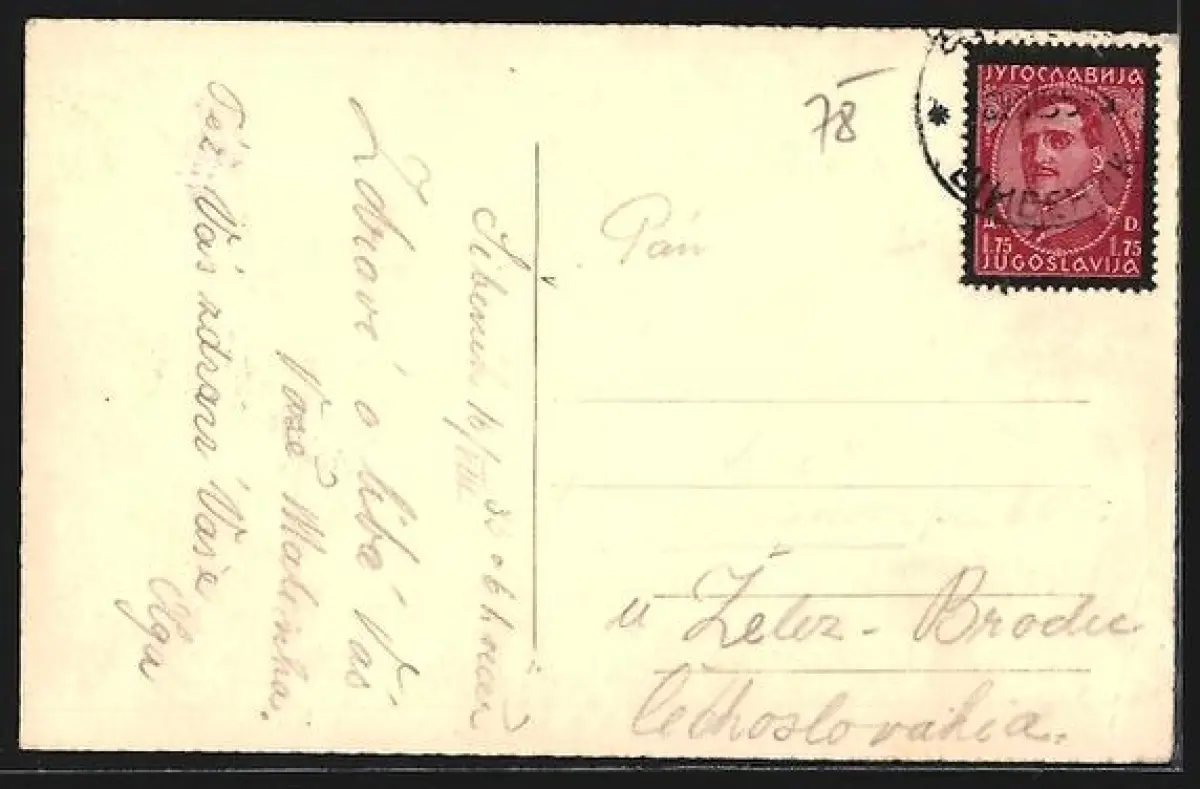 78
ЈУГОСЛАВИЈА
Д. D.
1.75 1.75
JUGOSLAVIJA
Pán
u Želez-Brodu
Čechoslovakia.
Šibenik 16/VIII 35
Zdraví a líbá Vás
Vaše Malinka.
Též Vás zdraví Vaše
Olga